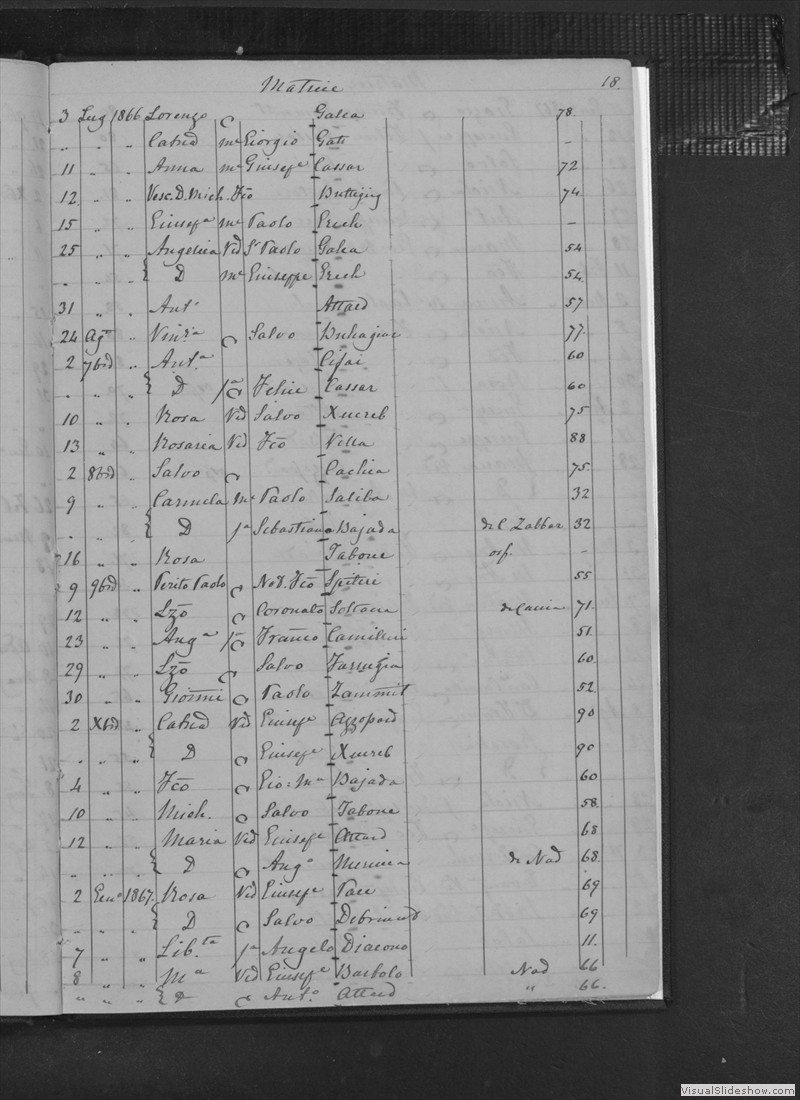 Matrice 18.
3 Lug 1866 Lorenzo Galea 78.
" " " Catred me Giorgio Gatt –
11 " " Anna me Giusepe Cassar 72
12 " " Vesc. D. Mich. Fco Buttigieg 74.
15 " " Giusepa me Paolo Grech –
25 " " Angelica Vid Sr Paolo Galea 54
" " " { D me Giuseppe Grech 54.
31 Anto Attard 57
24 Ago " Salvo Buhagiar 77.
2 7bre " Anta 60
" " " { D Felice Cassar 60
10 " " Rosa Vid Salvo Xuereb 75
13 " " Rosaria Vid Fco Vella 88
2 8bre " Salvo Cachia 75
9 " " Carmela Me Paolo Saliba 32
" " " { D Sebastiano Bajada del Zabbar 32
16 " " Rosa Tabone osp. –
9 9bre " Perito Paolo Not. Fco Spiteri 55
12 " " Lzo Coronato Soltana 71.
23 " " Anga Franco Camilleri 51.
29 " " Lzo Salvo Farrugia 60.
30 " " Gionni Paolo Zammit 52.
2 Xbre " Catred Vid Giusepe Azzopard 90
" " " { D Giusepe Xuereb 90
4 " " Fco Gio: Ma Bajada 60
10 " " Mich. Salvo Tabone 58.
12 " " Maria Vid Giusepe Attard 68
" " " { D Ango de Nad 68.
2 Geno 1867. Rosa Vid Giusepe Pace 69
" " " { D Salvo Debrincat 69
7 " " Libta Angelo Diacono 11.
8 " " Ma Vid Giusepe Bartolo Nad 66
" " " { D Anto Attard " 66.
VisualSlideshow.com